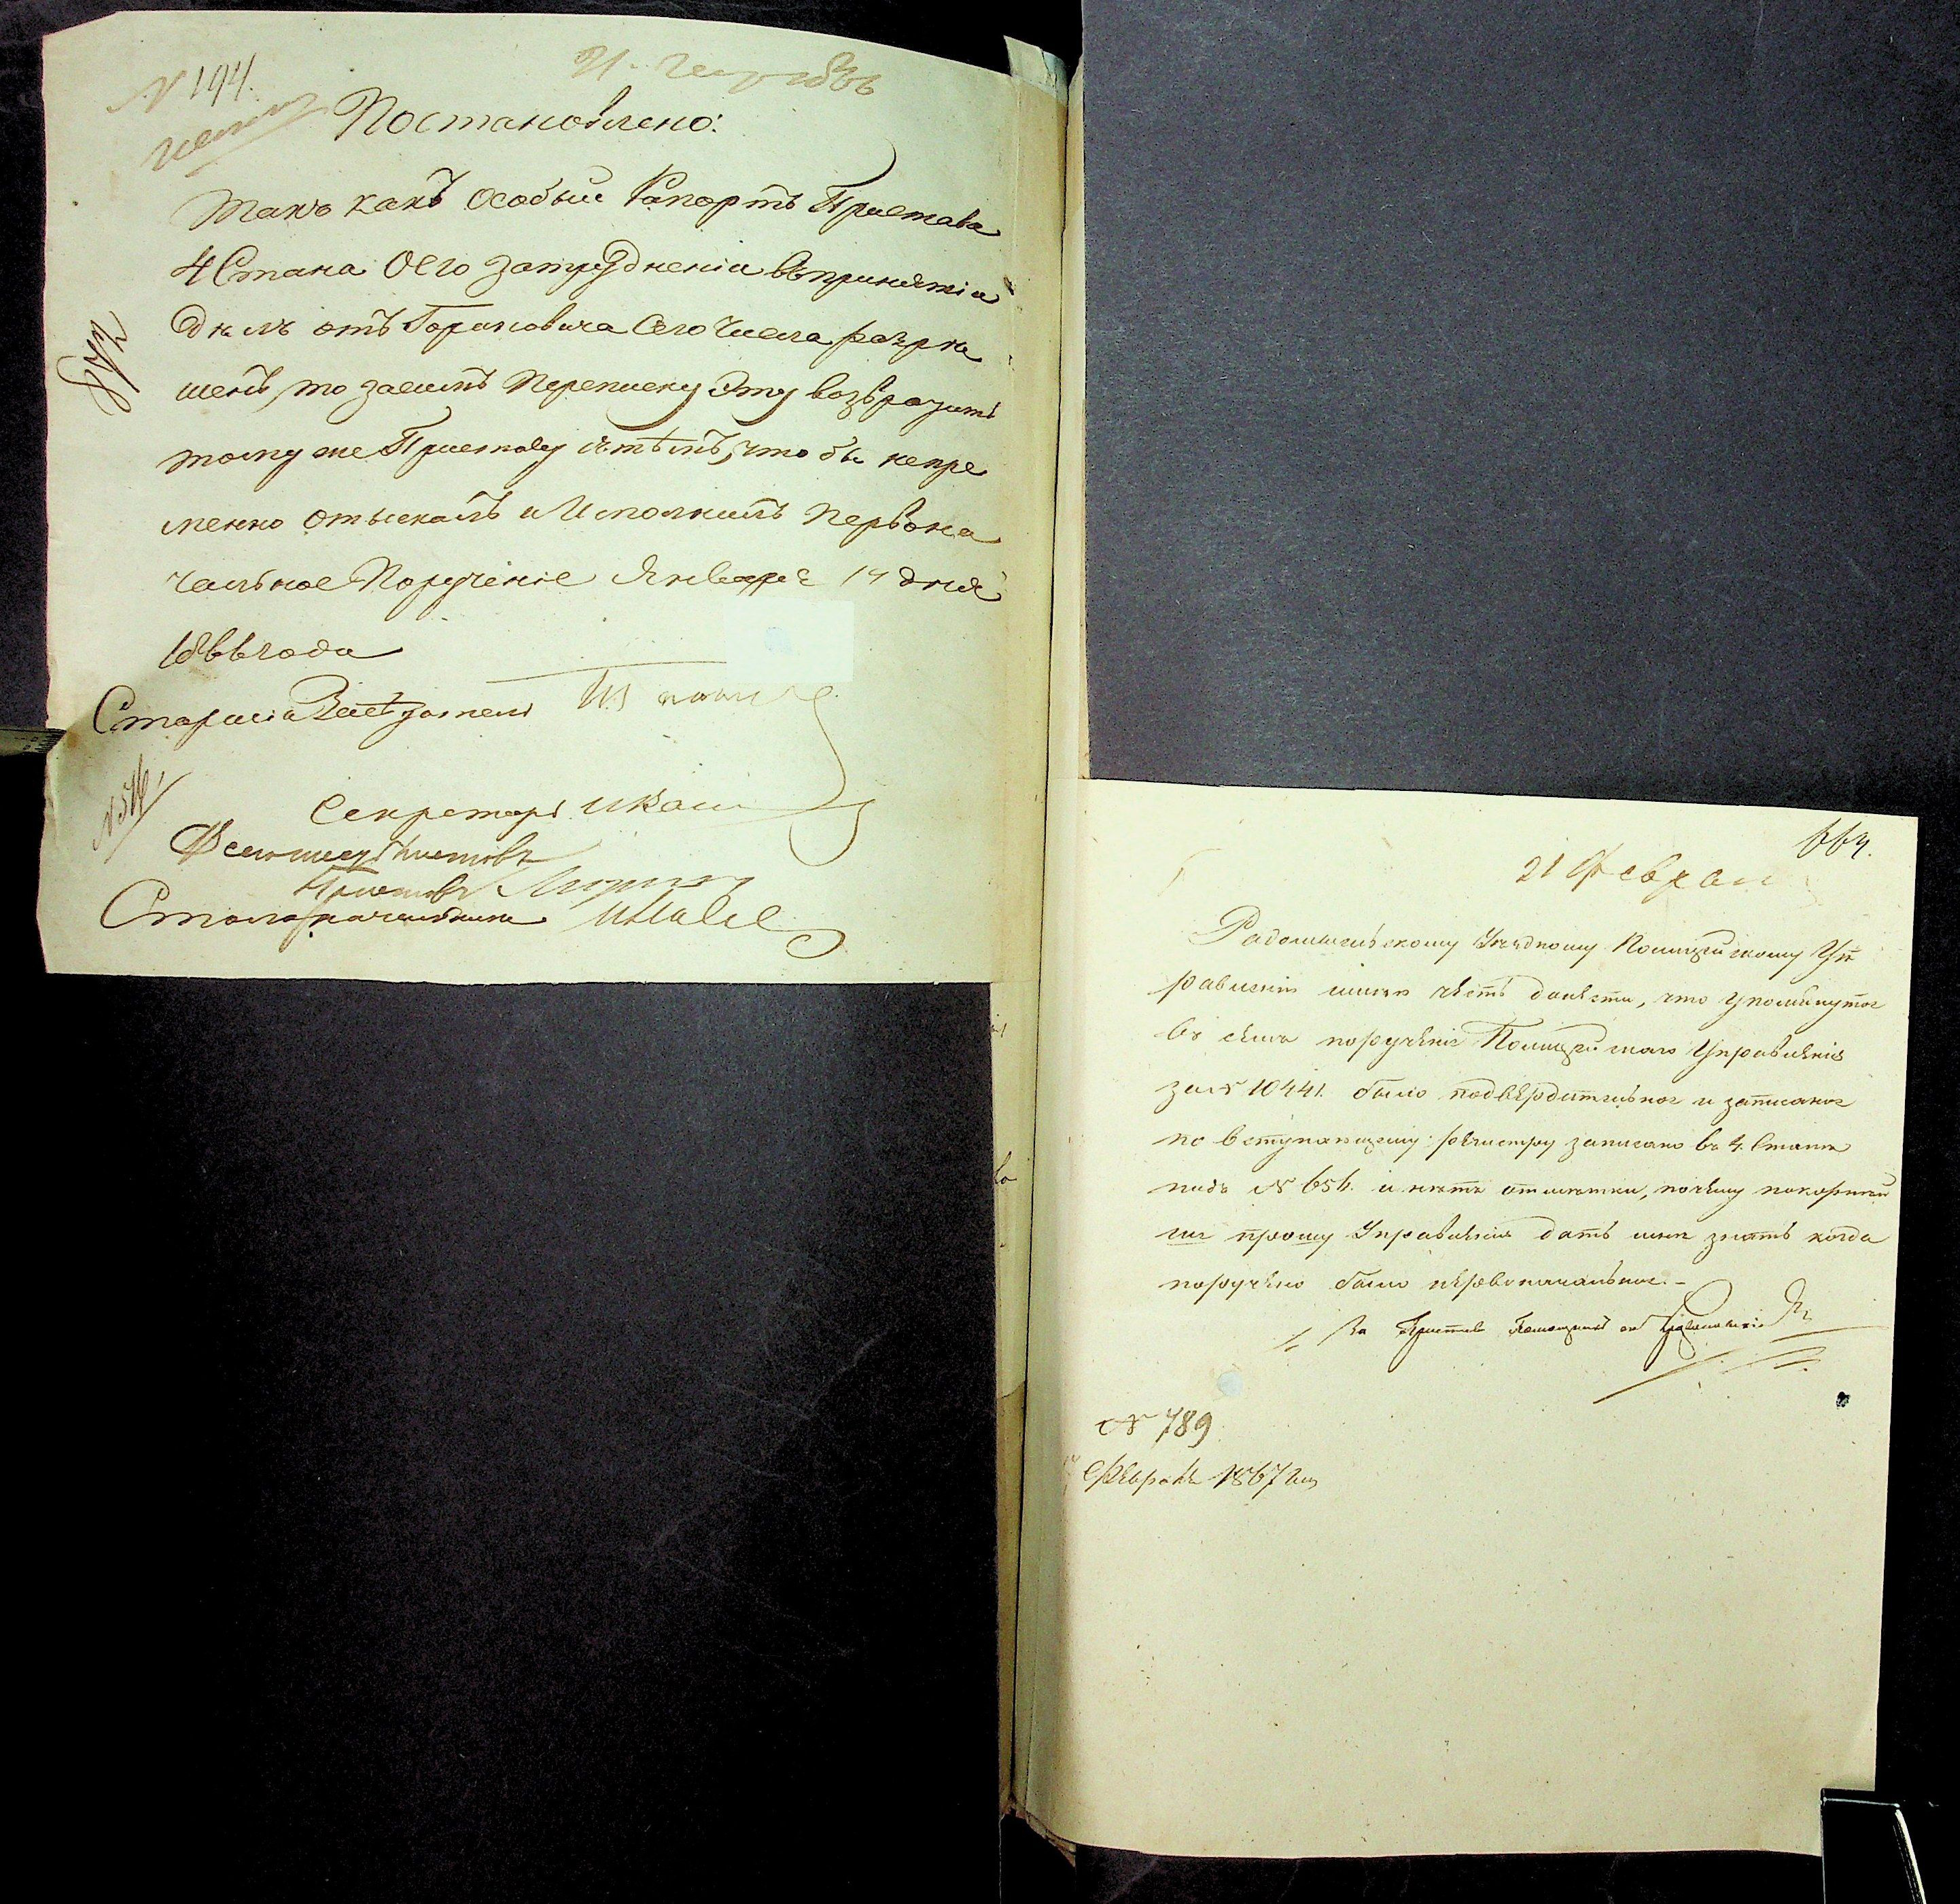 N 194.
Постановлено:
Такъ какъ Особый Рапортъ Пристава
4 Стана О его затрудненіи въ принятіи
Дѣлъ отъ Гориновича Сего Числа разрѣ
шенъ, то засимъ Переписку Эту возвратить
тому же Приставу съ тѣмъ, что бы непре
менно отыскалъ и Исполнилъ Первона
чальное Порученіе Января 14 дня
1866 года
842
Старшій Засѣдатель
Секретарь
Столоначальникъ
664.
21 Феврал
Радомысльскому Уѣздному Полицейскому Уп
равленію имѣю честь донести, что упомянутое
въ семъ порученіе Полицейскаго Управленія
за N 10441. было подвердительное и записаное
по вступающему регистру записано въ 4. Станѣ
подъ N 654. и нѣтъ отмѣтки, почему покорнѣй
ше прошу Управленія дать мнѣ знать когда
поручено было первоначальное.-
За Пристава Помощникъ его
N 789
Февраля 1867 года